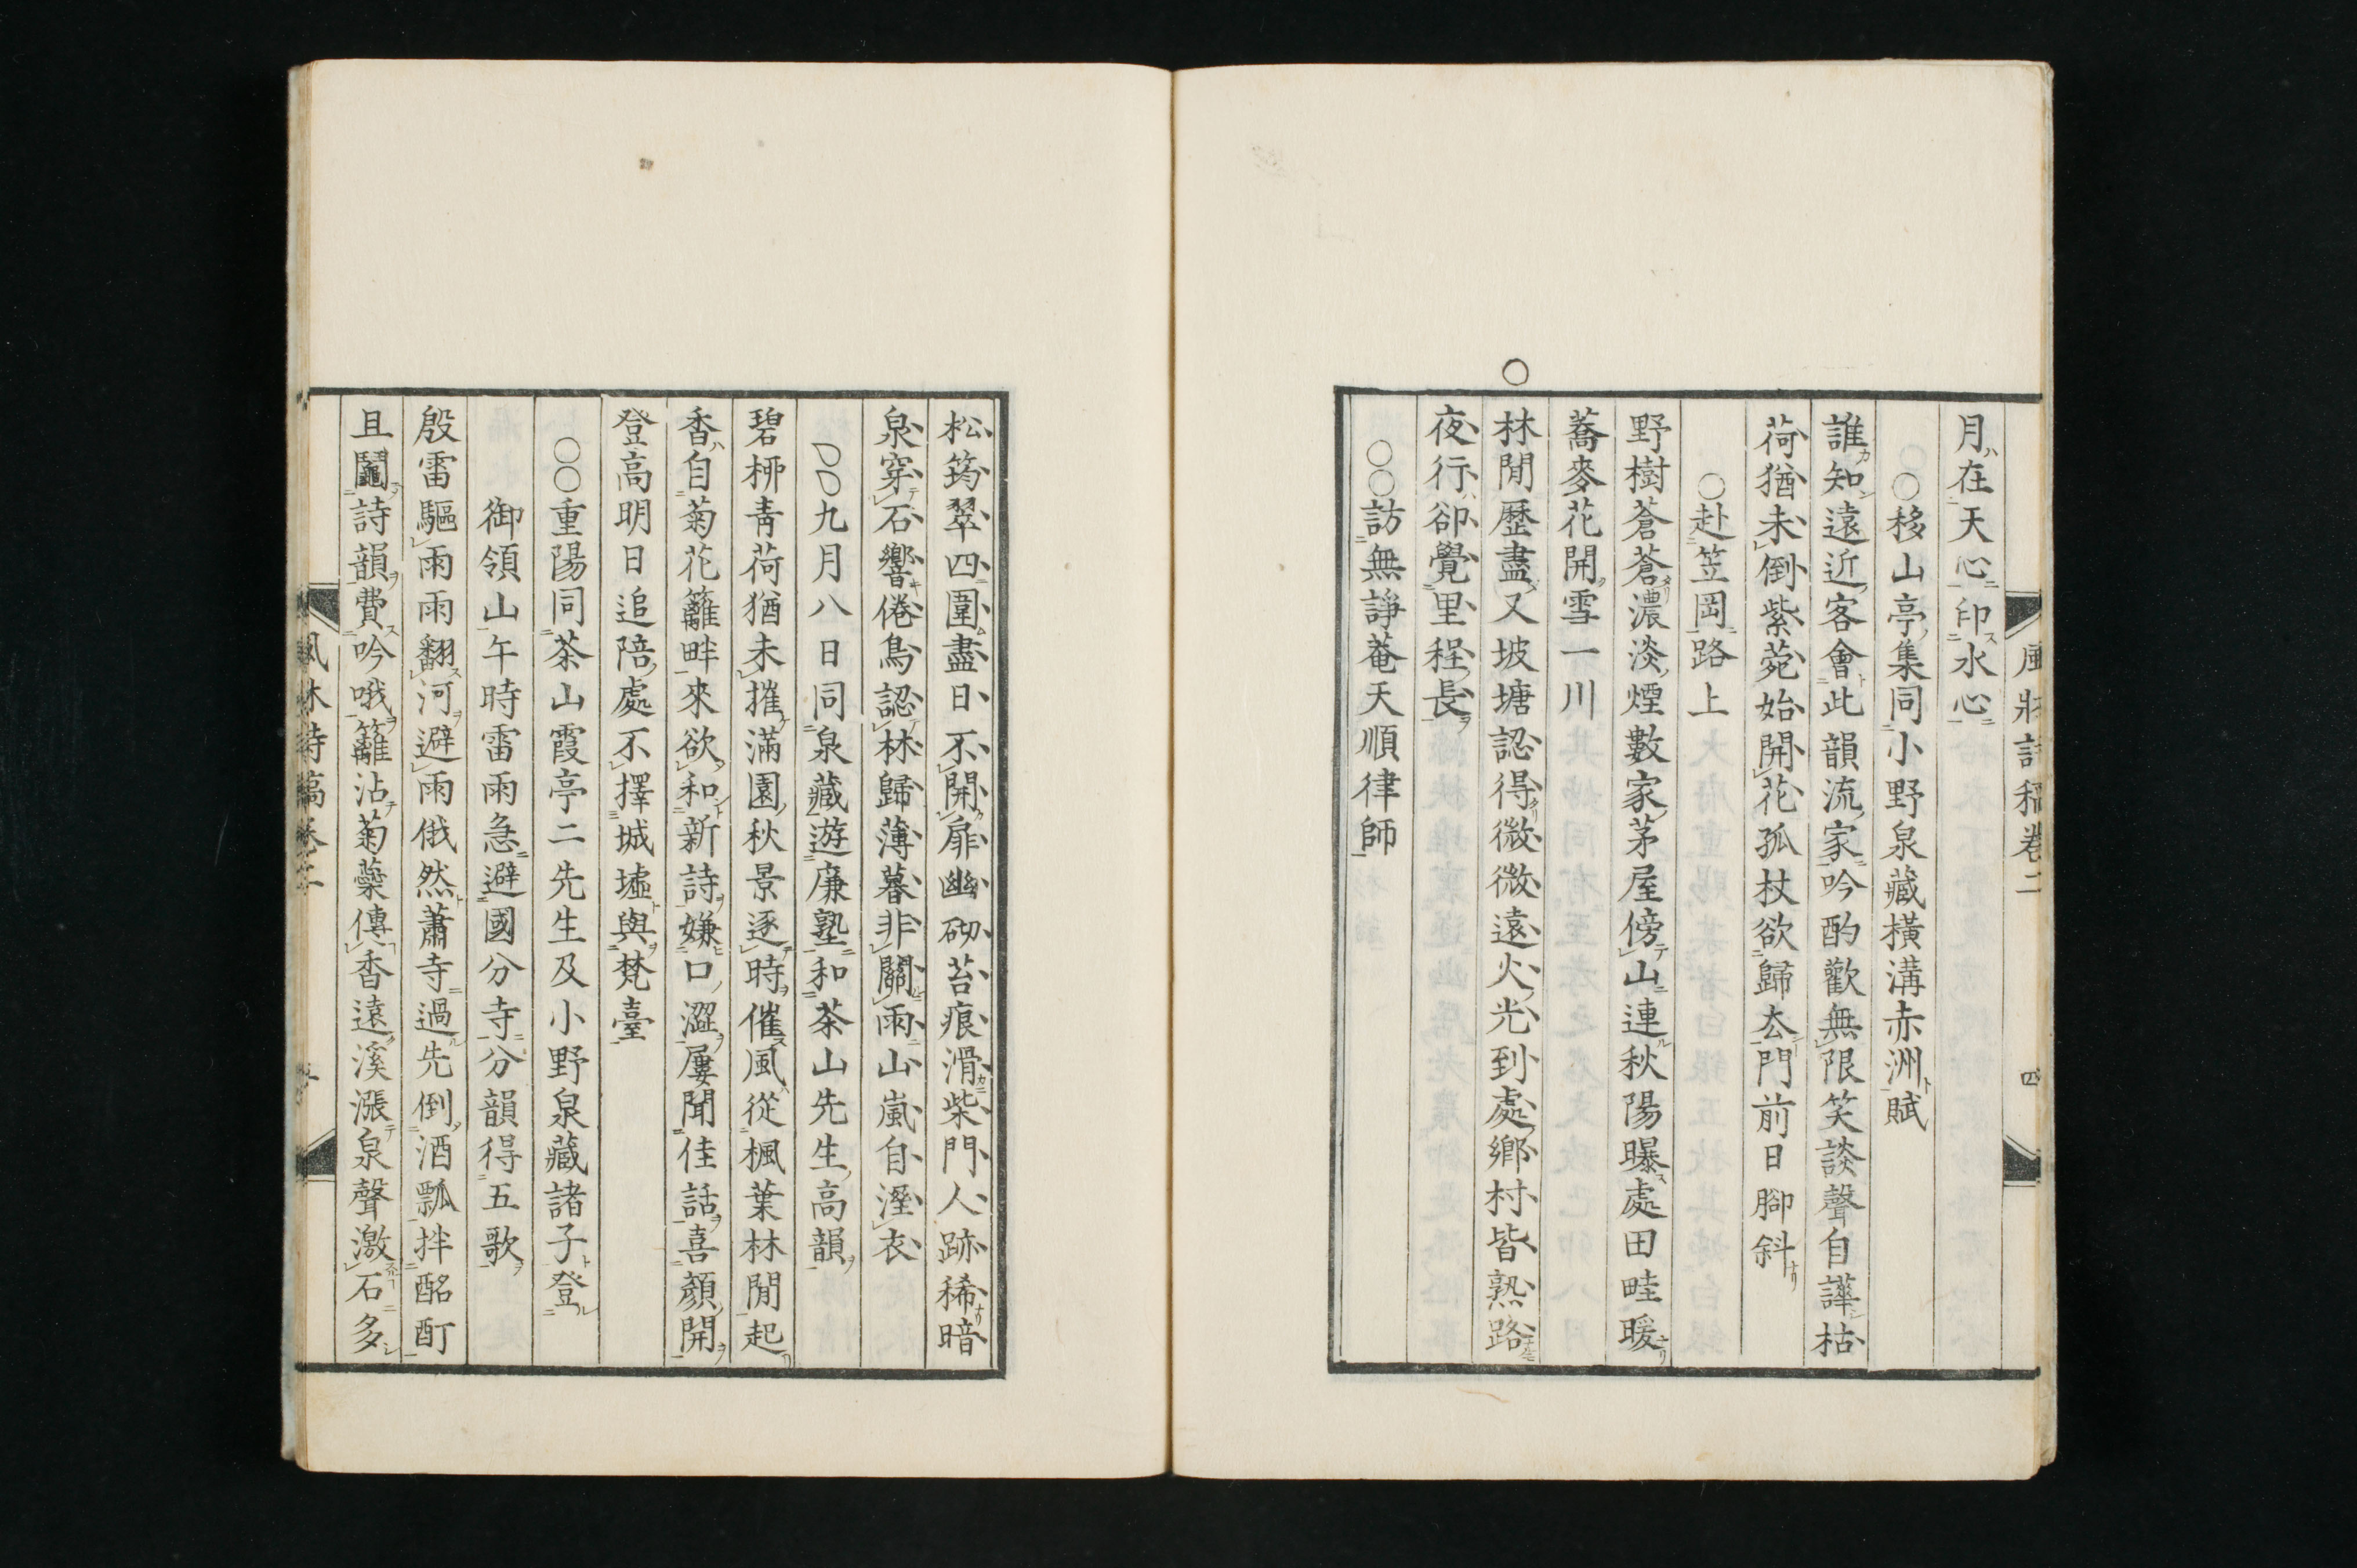 風牀詩稿卷二
四
月在天心印水心
○○移山亭集同小野泉藏橫溝赤洲賦
誰知遠近客會此韻流家吟酌歡無限笑談聲自譁枯
荷猶未倒紫菀始開花孤杖欲歸去門前日腳斜
○赴笠岡路上
野樹蒼蒼濃淡煙數家茅屋傍山連秋陽曝處田畦暖
蕎麥花開雪一川
○
林閒歷盡又坡塘認得微微遠火光到處鄉村皆熟路
夜行卻覺里程長
○○訪無諍菴天順律師
松筠翠四圍盡日不開扉幽砌苔痕滑柴門人跡稀暗
泉穿石響倦鳥認林歸薄暮非關雨山嵐自溼衣
○○九月八日同泉藏遊廉塾和茶山先生高韻
碧柳青荷猶未摧滿園秋景逐時催風從楓葉林閒起
香自菊花籬畔來欲和新詩嫌口澀屢聞佳話喜顏開
登高明日追陪處不擇城墟與梵臺
○○重陽同茶山霞亭二先生及小野泉藏諸子登
御領山午時雷雨急避國分寺分韻得五歌
殷雷驅雨雨翻河避雨俄然蕭寺過先倒酒瓢拌酩酊
且鬮詩韻費吟哦籬沾菊蘂傳香遠溪漲泉聲激石多
風牀詩稿卷二